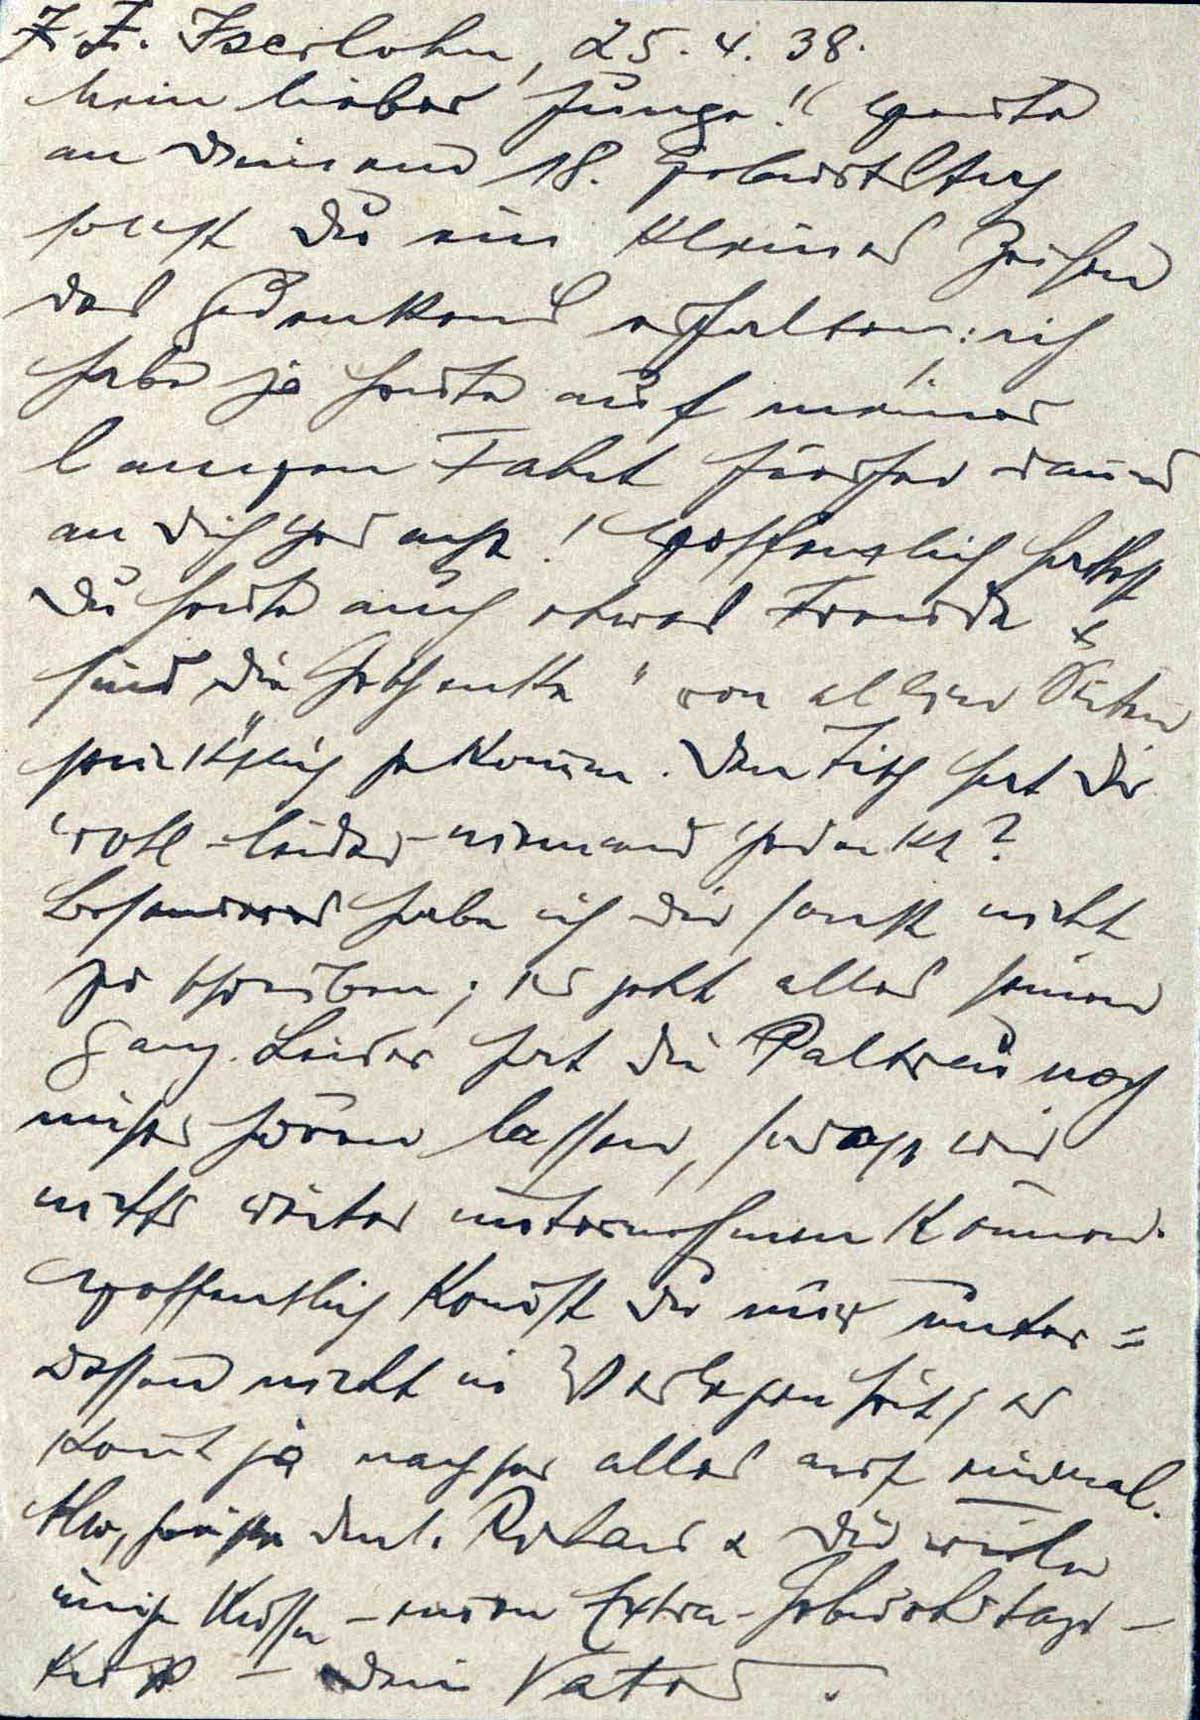 Z. Z. Iserlohn, 25.4.38.
Mein lieber Junge! Heute
an Deinem 18. Geburtstag
sollst Du ein kleines Zeichen
des Gedenkens erhalten; ich
habe ja heute auf meiner
langen Fahrt früher daran
an Dich gedacht! Hoffentlich hattest
Du heute auch etwas Freude &
sind die Geschenke von allen Seiten
pünktlich gekomen. Den Tisch hat Dir
wohl - leider - niemand gedeckt?
Besonderes habe ich Dir sonst nicht
zu schreiben; es geht alles seinen
Gang. Leider hat die Paltreu noch
nichts hören lassen, sodass wir
nichts weiter unternehmen können.
Hoffentlich komst Du mir unter=
dessen nicht in Verlegenheit; es
komt ja nachher alles auf einmal.
Also, grüsse Roland & Dir viele
innige Küsse - einen Extra-Geburtstags-
kuss - Dein Vater.